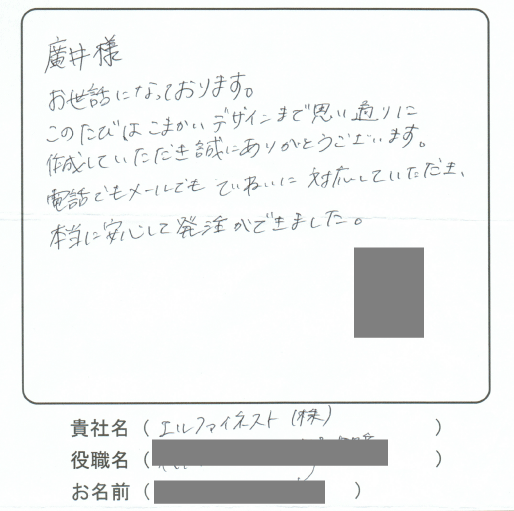 廣井様
お世話になっております。
このたびはこまかいデザインまで思い通りに
作成していただき誠にありがとうございます。
電話でもメールでもていねいに対応していただき、
本当に安心して発注ができました。
貴社名（エルファイネスト（株）　）
役職名（　）
お名前（　）